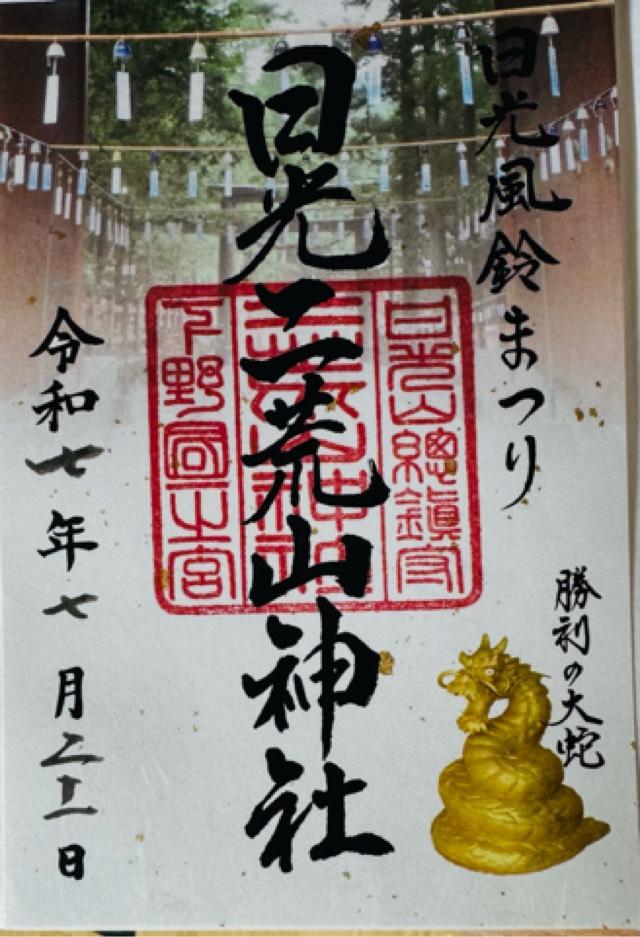 日光風鈴まつり
勝利の大蛇
日光二荒山神社
日光山總鎮守
二荒山神社
下野國一之宮
令和七年七月二十一日